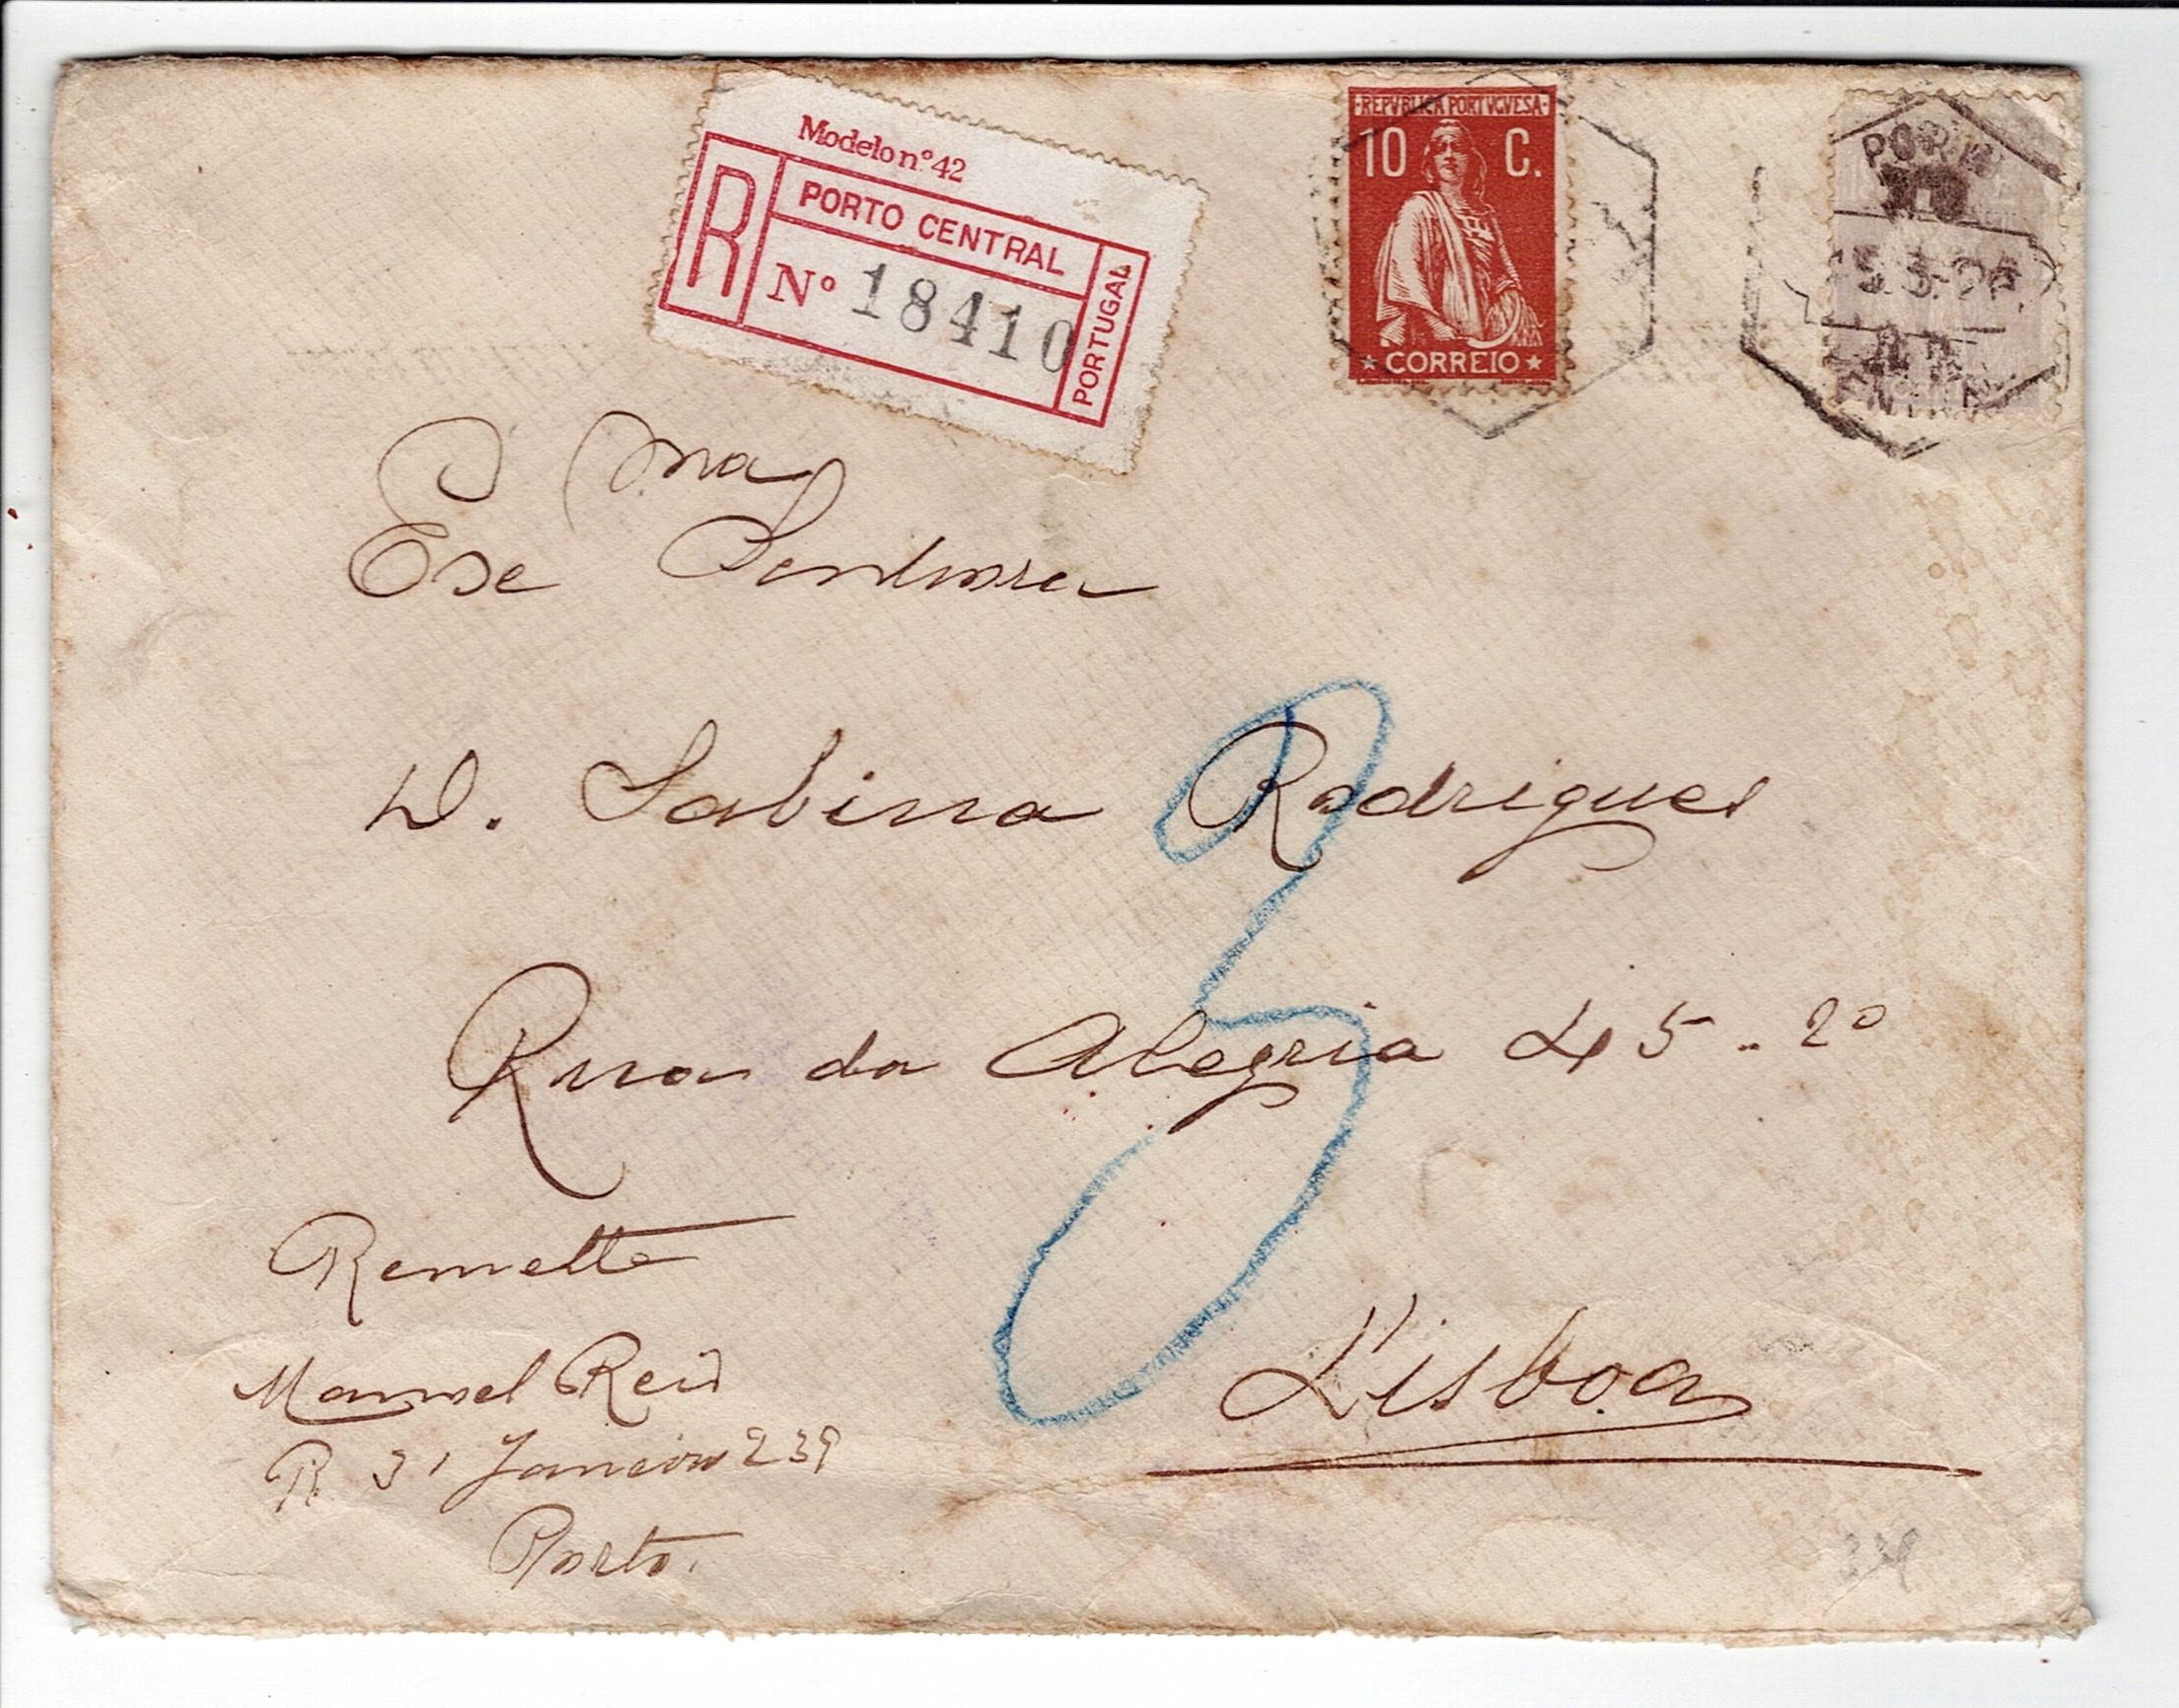 Modelo nº 42
R PORTO CENTRAL
Nº 18410
PORTUGAL
REPVBLICA PORTVGVESA
10 C.
CORREIO
PORTO
Ema
Exe Senhora
D. Sabina Rodrigues
Rua da Alegria 45 .. 2º
3
Remette
Manuel Reis
R. 31 Janeiro 239
Porto.
Lisboa
339